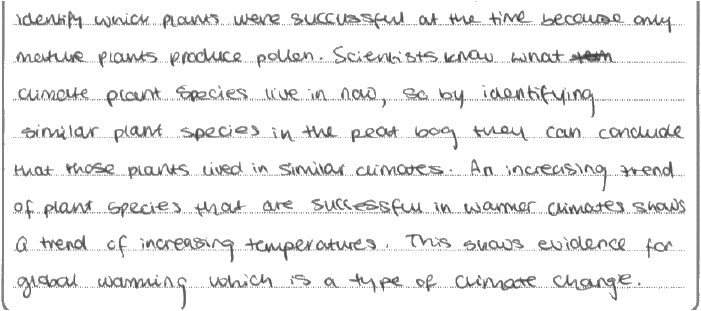 identify which plants were successful at the time because only
mature plants produce pollen. Scientists know what
climate plant species live in now, so by identifying
similar plant species in the peat bog they can conclude
that those plants lived in similar climates. An increasing trend
of plant species that are successful in warmer climates shows
a trend of increasing temperatures. This shows evidence for
global warming which is a type of climate change.